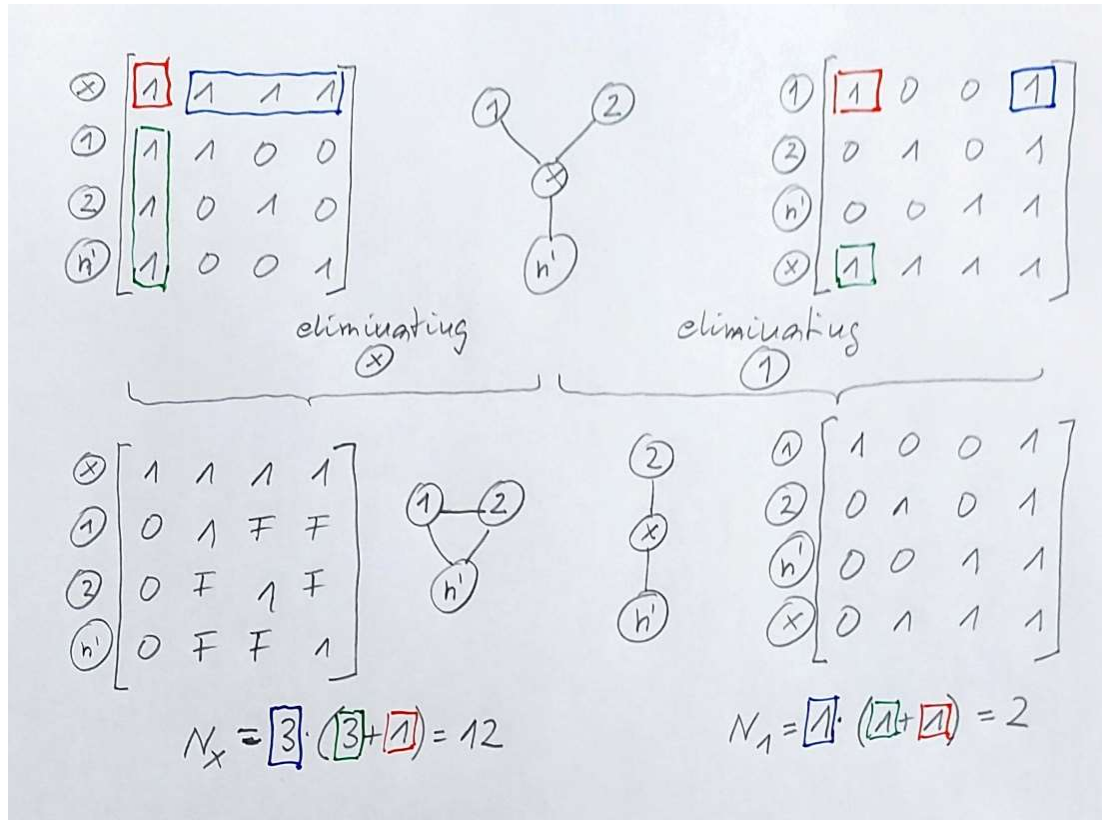 ⓧ 1 1 1 1
① 1 1 0 0
② 1 0 1 0
n' 1 0 0 1
① ②
ⓧ
n'
① 1 0 0 1
② 0 1 0 1
n' 0 0 1 1
ⓧ 1 1 1 1
eliminating
ⓧ
eliminating
①
ⓧ 1 1 1 1
① 0 1 F F
② 0 F 1 F
n' 0 F F 1
① ②
n'
②
ⓧ
n'
① 1 0 0 1
② 0 1 0 1
n' 0 0 1 1
ⓧ 0 1 1 1
Nₓ = 3 · (3+1) = 12
N₁ = 1 · (1+1) = 2